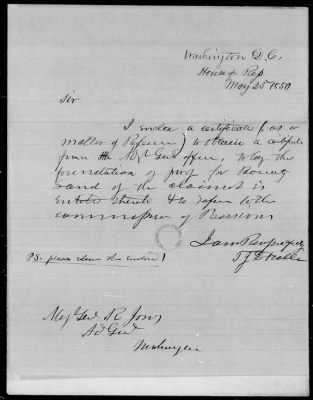 Washington D.C.
House of Rep
May 25 1850
Sir
I enclose a certificate (as a
matter of Reference) to obtain a certificate
from the Adjt Genl office, to lay the
foundation of proof for Bounty
Land if the claimant is
entitled thereto & to be with the
commissioner of Pensions
I am Respectfully
P.S. please return the enclosed)
Maj Genl R Jones
Ad Genl
Washington